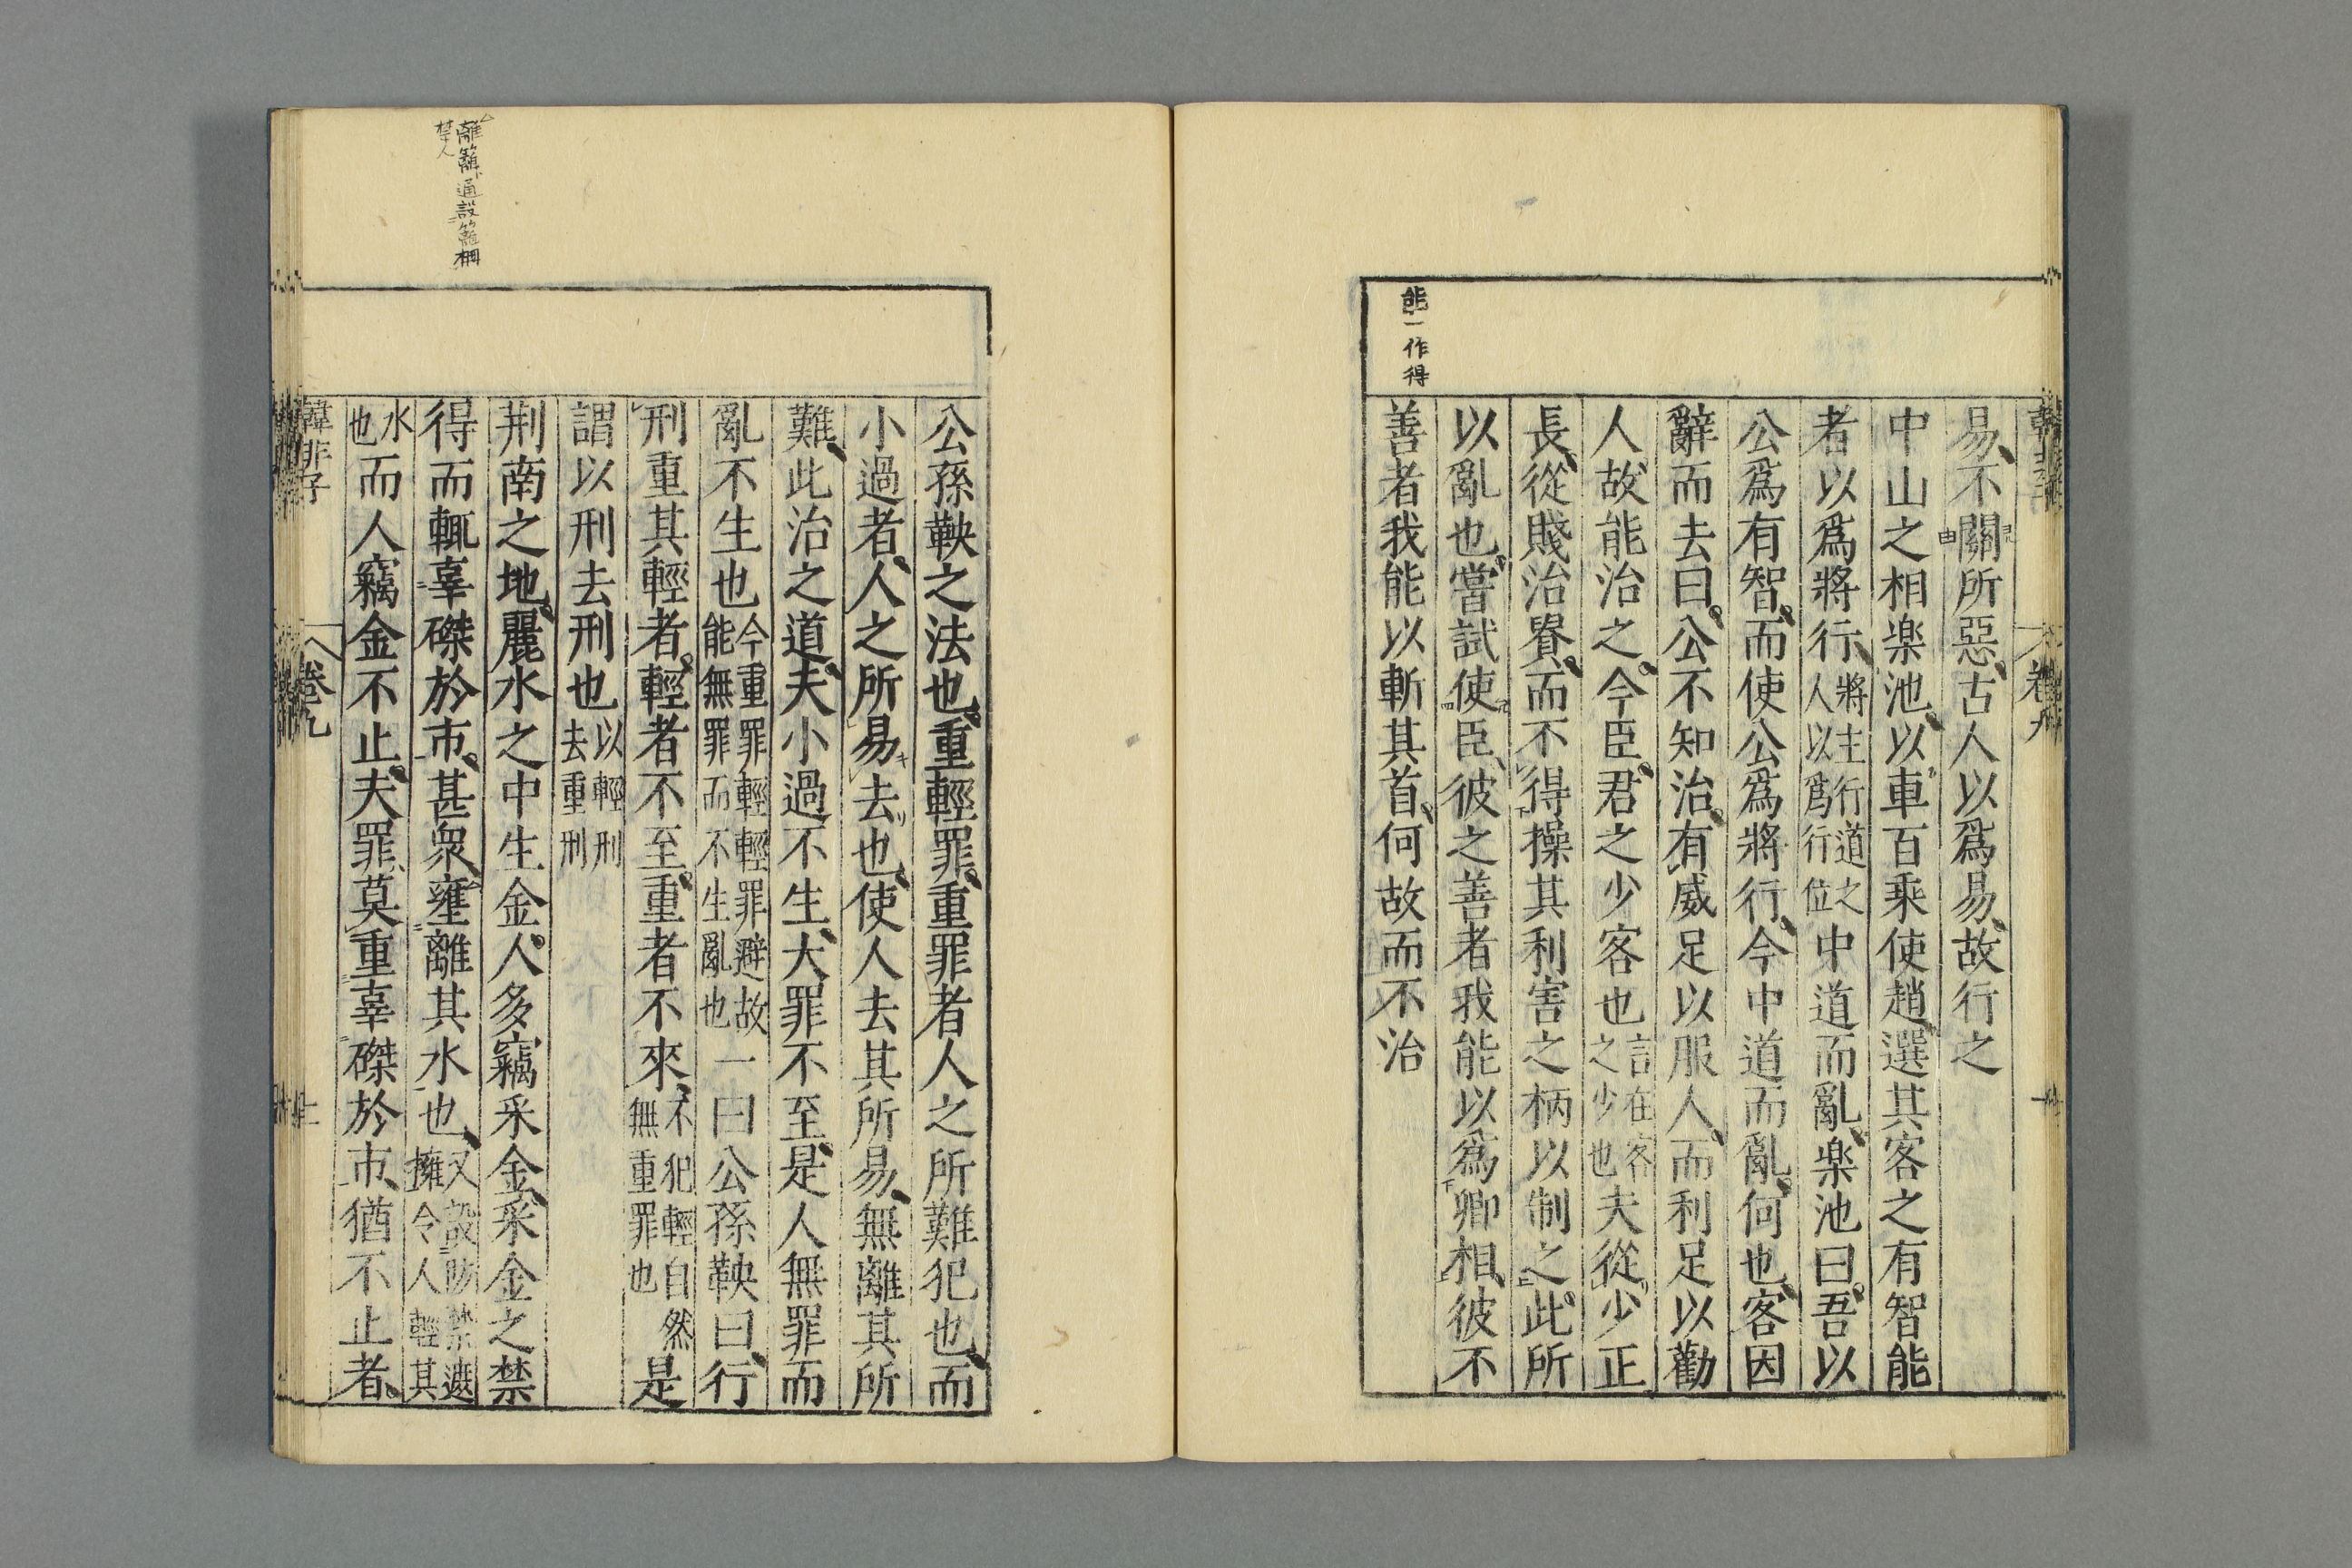 能一作得
易不關所惡古人以爲易故行之
中山之相楽池以車百乘使趙選其客之有智能
者以爲將行將主行道之人以爲行位中道而亂楽池曰吾以
公爲有智而使公爲將行今中道而亂何也客因
辭而去曰公不知治有威足以服人而利足以勸
人故能治之今臣君之少客也言在客之少也夫從少正
長從賤治貴而不得操其利害之柄以制之此所
以亂也嘗試使臣彼之善者我能以爲卿相彼不
善者我能以斬其首何故而不治
離籬通設籬柵
禁人
公孫鞅之法也重輕罪重罪者人之所難犯也而
小過者人之所易去也使人去其所易無離其所
難此治之道夫小過不生大罪不至是人無罪而
亂不生也今重罪輕輕罪避故能無罪而不生亂也一曰公孫鞅曰行
刑重其輕者輕者不至重者不來不犯輕自然無重罪也是
謂以刑去刑也以輕刑去重刑
荆南之地麗水之中生金人多竊采金采金之禁
得而輒辜磔於市甚衆壅離其水也又設防禁遮擁令人輕其
水也而人竊金不止夫罪莫重辜磔於市猶不止者
韓非子
卷九